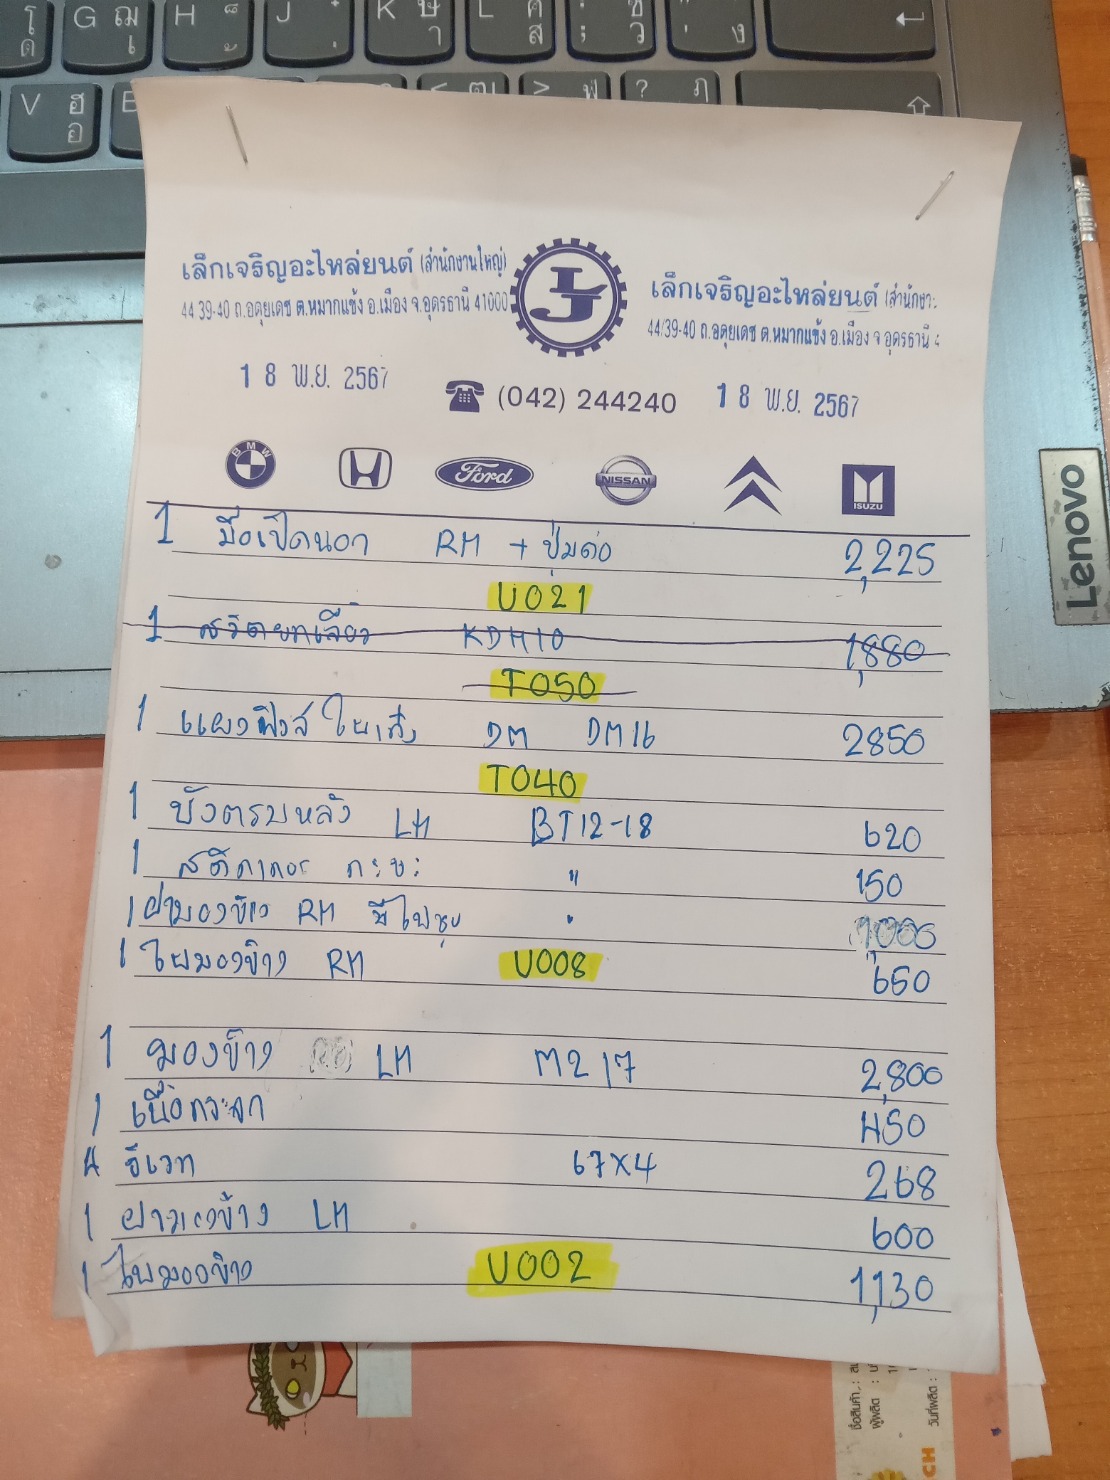 G ฌ เ H ็ ้ J ๋ ่ K ษ า L ศ ส ; ซ ว " . ' ง
V ฮ อ < ฒ > ฬ ? ฦ
เล็กเจริญอะไหล่ยนต์ (สำนักงานใหญ่)
44/39-40 ถ.อดุยเดช ต.หมากแข้ง อ.เมือง จ.อุดรธานี 41000
18 พ.ย. 2567
LJ
เล็กเจริญอะไหล่ยนต์ (สำนักงา
44/39-40 ถ.อดุยเดช ต.หมากแข้ง อ.เมือง จ.อุดรธานี 4
18 พ.ย. 2567
(042) 244240
BMW H Ford NISSAN ISUZU
Lenovo
1 มือเปิดนอก RH + ปุ่มดอ 2,225
U021
1 สวิตยกเลี้ยว KDH10 1,880
T050
1 แผงฟิวส์ DM DM16 2850
T040
1 บังตรบหลัง LH BT12-18 620
1 สติกเกอร์ กระบะ " 150
1 ฝามองข้าง RH มีไฟ " 1,000
1 ไฟมองข้าง RH U008 650
1 มองข้าง LH M2 17 2,800
1 เนื้อกระจก 450
4 67x4 268
1 ฝามองข้าง LH 600
1 ไฟมองข้าง U002 1,130
ชื่อสินค้า :
ผู้ผลิต :
วันที่ผลิต :
CH